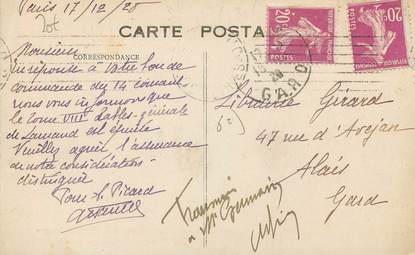 Paris 17/12/25
CARTE POSTALE
CORRESPONDANCE
Monsieur
En réponse à Votre bon de
commande du 14 courant
nous vous informons que
le tome VIII tables générale
de Lamaud est épuisée
Veuillez agréer l'assurance
de notre considération
distinguée
Pour A. Picard
Librairie Girard
47 rue d'Avejan
Alais
Gard
20c
POSTES
20c
POSTES
GARD
à St Germain